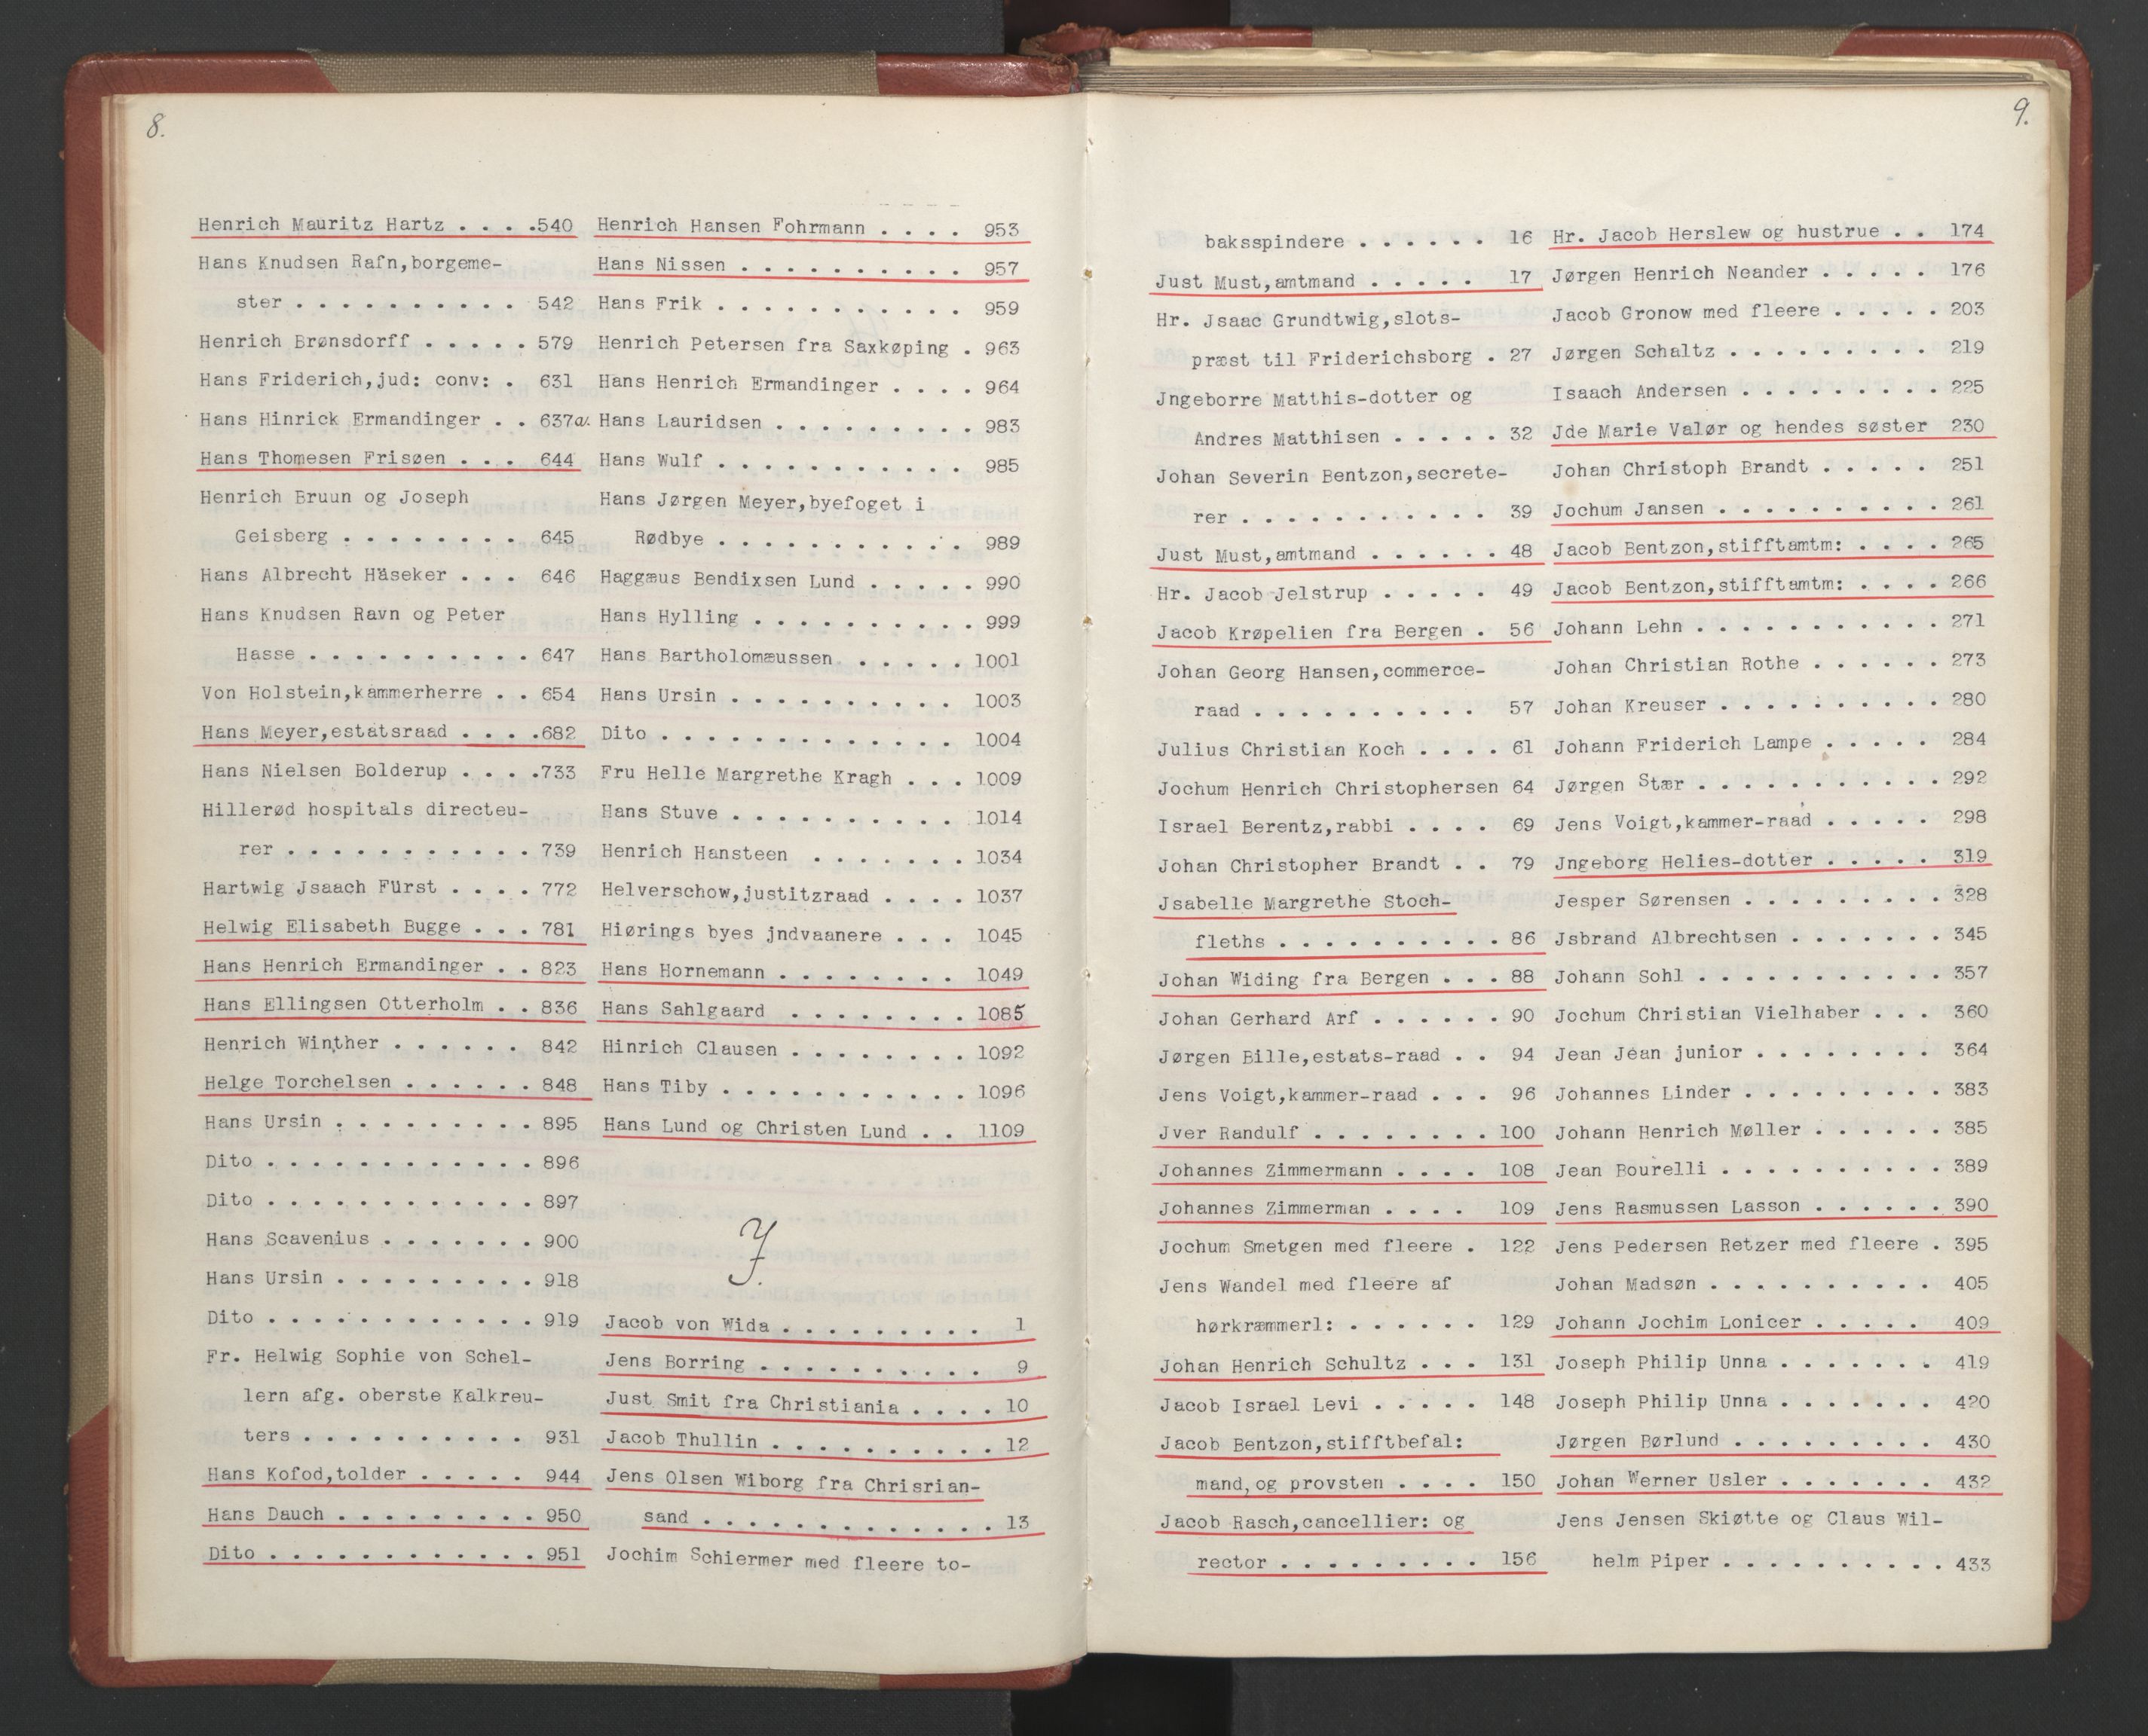 8.
Henrich Mauritz Hartz . . . .540
Hans Knudsen Rafn,borgeme-
ster . . . . . . . . . . 542
Henrich Brønsdorff . . . . . 579
Hans Friderich,jud: conv: . 631
Hans Hinrick Ermandinger . . 637a.
Hans Thomesen Frisøen . . . 644
Henrich Bruun og Joseph
Geisberg . . . . . . . . 645
Hans Albrecht Häseker . . . 646
Hans Knudsen Ravn og Peter
Hasse . . . . . . . . . . 647
Von Holstein,kammerherre . . 654
Hans Meyer,estatsraad . . . .682
Hans Nielsen Bolderup . . . .733
Hillerød hospitals directeu-
rer . . . . . . . . . . . 739
Hartwig Jsaach Fürst . . . . 772
Helwig Elisabeth Bugge . . . 781
Hans Henrich Ermandinger . . 823
Hans Ellingsen Otterholm . . 836
Henrich Winther . . . . . . 842
Helge Torchelsen . . . . . . 848
Hans Ursin . . . . . . . . . 895
Dito . . . . . . . . . . . . 896
Dito . . . . . . . . . . . . 897
Hans Scavenius . . . . . . . 900
Hans Ursin . . . . . . . . . 918
Dito . . . . . . . . . . . . 919
Fr. Helwig Sophie von Schel-
lern afg. oberste Kalkreu-
ters . . . . . . . . . . 931
Hans Kofod,tolder . . . . . 944
Hans Dauch . . . . . . . . . 950
Dito . . . . . . . . . . . . 951
Henrich Hansen Fohrmann . . . . 953
Hans Nissen . . . . . . . . . . 957
Hans Frik . . . . . . . . . . . 959
Henrich Petersen fra Saxkøping . 963
Hans Henrich Ermandinger . . . . 964
Hans Lauridsen . . . . . . . . . 983
Hans Wulf . . . . . . . . . . . 985
Hans Jørgen Meyer,byefoget i
Rødbye . . . . . . . . . . . 989
Haggæus Bendixsen Lund . . . . . 990
Hans Hylling . . . . . . . . . . 999
Hans Bartholomæussen . . . . . . 1001
Hans Ursin . . . . . . . . . . 1003
Dito . . . . . . . . . . . . . 1004
Fru Helle Margrethe Kragh . . . 1009
Hans Stuve . . . . . . . . . . 1014
Henrich Hansteen . . . . . . . 1034
Helverschow,justitzraad . . . . 1037
Hiørings byes jndvaanere . . . 1045
Hans Hornemann . . . . . . . . 1049
Hans Sahlgaard . . . . . . . . 1085
Hinrich Clausen . . . . . . . . 1092
Hans Tiby . . . . . . . . . . . 1096
Hans Lund og Christen Lund . . 1109
J.
Jacob von Wida . . . . . . . . . 1
Jens Borring . . . . . . . . . . 9
Just Smit fra Christiania . . . . 10
Jacob Thullin . . . . . . . . . . 12
Jens Olsen Wiborg fra Chrisrian-
sand . . . . . . . . . . . . . 13
Jochim Schiermer med fleere to-
9.
baksspindere . . . . . . 16
Just Must,amtmand . . . . . 17
Hr. Jsaac Grundtwig,slots-
præst til Friderichsborg . 27
Jngeborre Matthis-dotter og
Andres Matthisen . . . . . 32
Johan Severin Bentzon,secrete-
rer . . . . . . . . . . . 39
Just Must,amtmand . . . . . . 48
Hr. Jacob Jelstrup . . . . . 49
Jacob Krøpelien fra Bergen . 56
Johan Georg Hansen,commerce-
raad . . . . . . . . . . 57
Julius Christian Koch . . . . 61
Jochum Henrich Christophersen 64
Israel Berentz,rabbi . . . . 69
Johan Christopher Brandt . . 79
Jsabelle Margrethe Stoch-
fleths . . . . . . . . . . 86
Johan Widing fra Bergen . . . 88
Johan Gerhard Arf . . . . . . 90
Jørgen Bille,estats-raad . . 94
Jens Voigt,kammer-raad . . . 96
Jver Randulf . . . . . . . . 100
Johannes Zimmermann . . . . 108
Johannes Zimmerman . . . . 109
Jochum Smetgen med fleere . 122
Jens Wandel med fleere af
hørkræmmerl: . . . . . . 129
Johan Henrich Schultz . . . 131
Jacob Israel Levi . . . . . 148
Jacob Bentzon,stifftbefal:
mand,og provsten . . . . 150
Jacob Rasch,cancellier: og
rector . . . . . . . . . 156
Hr. Jacob Herslew og hustrue . . 174
Jørgen Henrich Neander . . . . . 176
Jacob Gronow med fleere . . . . . 203
Jørgen Schaltz . . . . . . . . . 219
Isaach Andersen . . . . . . . . . 225
Jde Marie Valør og hendes søster 230
Johan Christoph Brandt . . . . . 251
Jochum Jansen . . . . . . . . . . 261
Jacob Bentzon,stifftamtm: . . . . 265
Jacob Bentzon,stifftamtm: . . . . 266
Johann Lehn . . . . . . . . . . . 271
Johan Christian Rothe . . . . . . 273
Johan Kreuser . . . . . . . . . . 280
Johann Friderich Lampe . . . . . 284
Jørgen Stær . . . . . . . . . . . 292
Jens Voigt,kammer-raad . . . . . 298
Jngeborg Helies-dotter . . . . . 319
Jesper Sørensen . . . . . . . . . 328
Jsbrand Albrechtsen . . . . . . . 345
Johann Sohl . . . . . . . . . . . 357
Jochum Christian Vielhaber . . . 360
Jean Jean junior . . . . . . . . 364
Johannes Linder . . . . . . . . . 383
Johann Henrich Møller . . . . . . 385
Jean Bourelli . . . . . . . . . . 389
Jens Rasmussen Lasson . . . . . . 390
Jens Pedersen Retzer med fleere . 395
Johan Madsøn . . . . . . . . . . 405
Johann Jochim Lonicer . . . . . 409
Joseph Philip Unna . . . . . . . 419
Joseph Philip Unna . . . . . . . 420
Jørgen Børlund . . . . . . . . . 430
Johan Werner Usler . . . . . . . 432
Jens Jensen Skiøtte og Claus Wil-
helm Piper . . . . . . . . . . 433